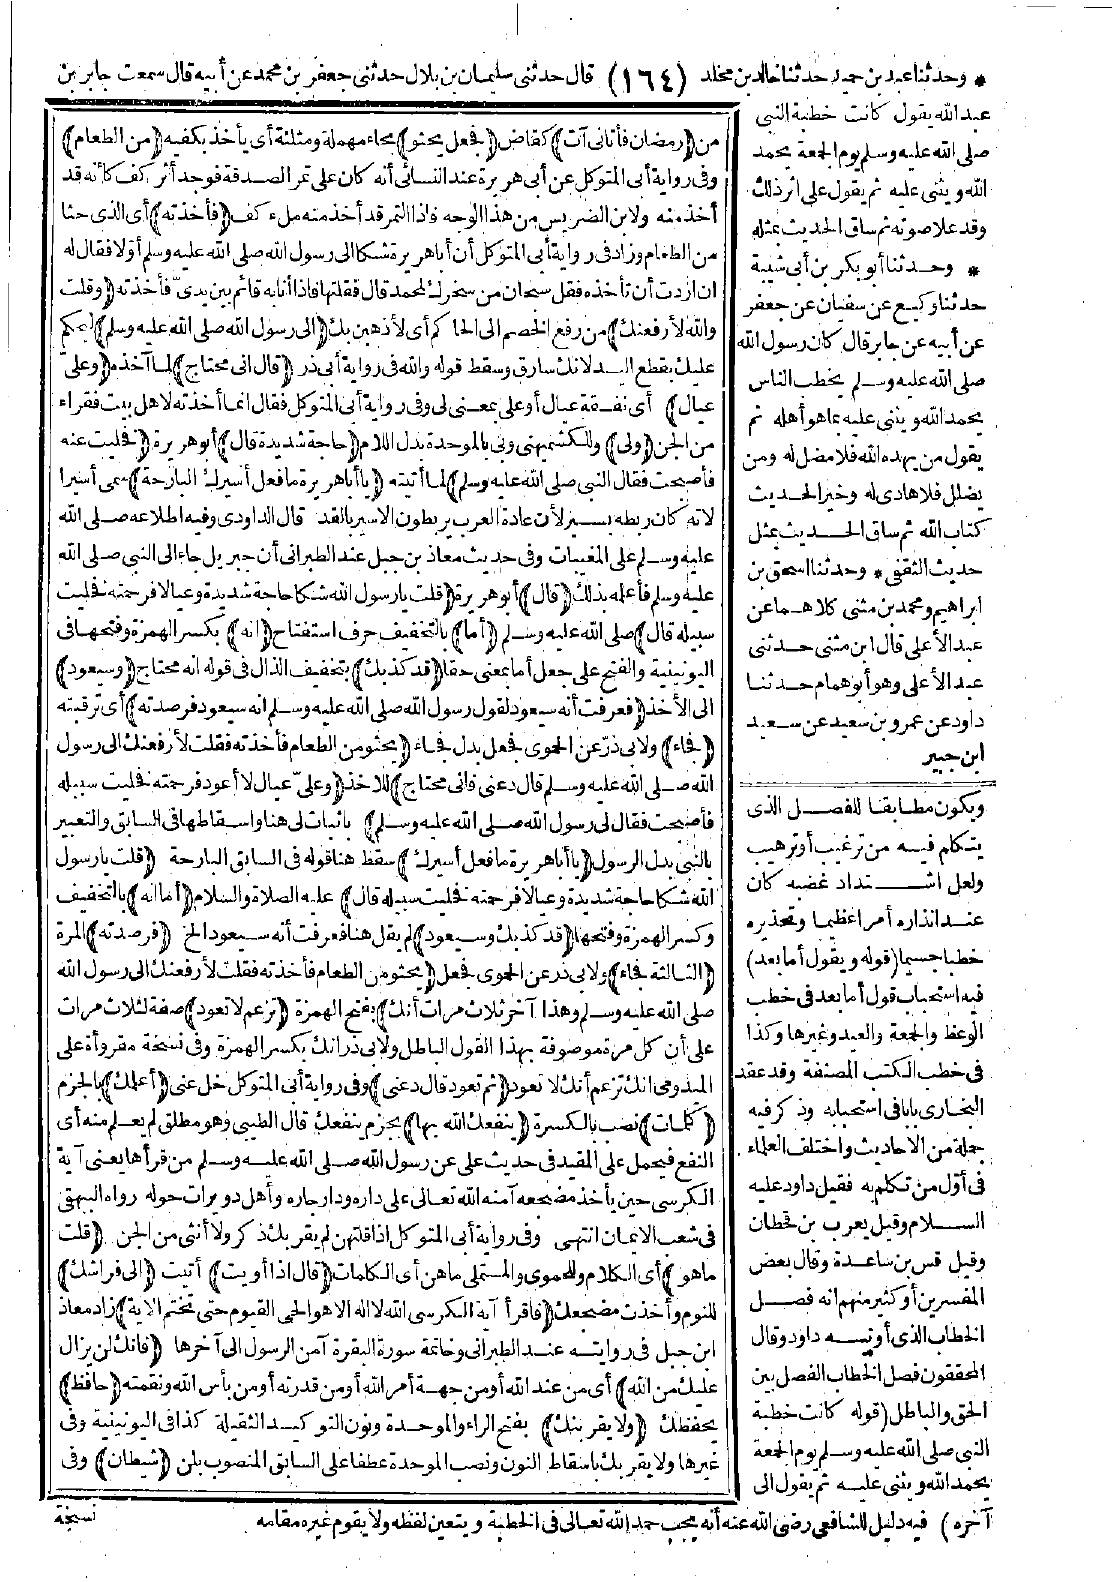 * وحدثنا عبد بن حميد حدثنا خالد بن مخلد (١٦٤) قال حدثنى سليمان بن بلال حدثنى جعفر بن محمد عن أبيه قال سمعت جابر بن
عبد الله يقول كانت خطبة النبي
صلى الله عليه وسلم يوم الجمعة يحمد
الله ويثنى عليه ثم يقول على اثر ذلك
وقد علا صوته ثم ساق الحديث بمثله
* وحدثنا أبو بكر بن أبى شيبة
حدثنا وكيع عن سفيان عن جعفر
عن أبيه عن جابر قال كان رسول الله
صلى الله عليه وسلم يخطب الناس
يحمد الله ويثنى عليه بما هو أهله ثم
يقول من يهده الله فلا مضل له ومن
يضلل فلا هادى له وخير الحديث
كتاب الله ثم ساق الحديث بمثل
حديث الثقفى * وحدثنا اسحق بن
ابراهيم ومحمد بن مثنى كلاهما عن
عبد الأعلى قال ابن مثنى حدثنى
عبد الأعلى وهو أبو همام حدثنا
داود عن عمرو بن سعيد عن سعيد
ابن جبير
ويكون مطابقا للفصل الذى
يتكلم فيه من ترغيب أو ترهيب
ولعل اشتداد غضبه كان
عند انذاره أمرا عظيما وتحذيره
خطبا جسيما (قوله ويقول أما بعد)
فيه استحباب قول أما بعد فى خطب
الوعظ والجمعة والعيد وغيرها وكذا
فى خطب الكتب المصنفة وقد عقد
البخارى بابا فى استحبابه وذكر فيه
جملة من الاحاديث واختلف العلماء
فى أول من تكلم به فقيل داود عليه
السلام وقيل يعرب بن قحطان
وقيل قس بن ساعدة وقال بعض
المفسرين أو كثير منهم انه فصل
الخطاب الذى أوتيه داود وقال
المحققون فصل الخطاب الفصل بين
الحق والباطل (قوله كانت خطبة
النبى صلى الله عليه وسلم يوم الجمعة
يحمد الله ويثنى عليه ثم يقول الى
آخره) فيه دليل للشافعى رضى الله عنه أنه يجب حمد الله تعالى فى الخطبة ويتعين لفظه ولا يقوم غيره مقامه
من (رمضان فأتانى آت) كقاض (فجعل يحثو) بحاء مهملة ومثلثة أى يأخذ بكفيه (من الطعام)
وفى رواية أبى المتوكل عن أبى هريرة عند النسائى أنه كان على تمر الصدقة فوجد أثر كف كأنه قد
أخذ منه ولابن الضريس من هذا الوجه فاذا التمر قد أخذ منه ملء كف (فأخذته) أى الذى حثا
من الطعام وزاد فى رواية أبى المتوكل أن أبا هريرة شكا الى رسول الله صلى الله عليه وسلم أولا فقال له
ان أردت أن تأخذه فقل سبحان من سخرك لمحمد قال فقلتها فاذا أنا به قائم بين يدىّ فأخذته (وقلت
والله لأرفعنك) من رفع الخصم الى الحاكم أى لأذهبن بك (الى رسول الله صلى الله عليه وسلم) ليحكم
عليك بقطع اليد لانك سارق وسقط قوله والله فى رواية أبى ذر (قال انى محتاج) لما آخذه (وعلىّ
عيال) أى نفقة عيال أو على بمعنى لى وفى رواية أبى المتوكل فقال انما أخذته لاهل بيت فقراء
من الجن (ولى) وللكشميهنى وبى بالموحدة بدل اللام (حاجة شديدة قال) أبو هريرة (فخليت عنه
فأصبحت فقال النبى صلى الله عليه وسلم) لما أتيته (يا أبا هريرة ما فعل أسيرك البارحة) سمى أسيرا
لانه كان ربطه بسير لأن عادة العرب يربطون الاسير بالقد قال الداودى وفيه اطلاعه صلى الله
عليه وسلم على المغيبات وفى حديث معاذ بن جبل عند الطبرانى أن جبريل جاء الى النبى صلى الله
عليه وسلم فأعلمه بذلك (قال) أبو هريرة (قلت يا رسول الله شكا حاجة شديدة وعيالا فرحمته فخليت
سبيله قال) صلى الله عليه وسلم (أما) بالتخفيف حرف استفتاح (انه) بكسر الهمزة وفتحها فى
اليونينية والفتح على جعل أما بمعنى حقا (قد كذبك) بتخفيف الذال فى قوله انه محتاج (وسيعود)
الى الأخذ (فعرفت أنه سيعود لقول رسول الله صلى الله عليه وسلم انه سيعود فرصدته) أى ترقبته
(فجاء) ولابى ذرّ عن الحموى فجعل بدل فجاء (يحثو من الطعام فأخذته فقلت لأرفعنك الى رسول
الله صلى الله عليه وسلم قال دعنى فانى محتاج) للاخذ (وعلىّ عيال لا أعود فرحمته فخليت سبيله
فأصبحت فقال لى رسول الله صلى الله عليه وسلم) باثبات لى هنا واسقاطها فى السابق والتعبير
بالنبى بدل الرسول (يا أبا هريرة ما فعل أسيرك) سقط هنا قوله فى السابق البارحة (قلت يا رسول
الله شكا حاجة شديدة وعيالا فرحمته فخليت سبيله قال) عليه الصلاة والسلام (أما انه) بالتخفيف
وكسر الهمزة وفتحها (قد كذبك وسيعود) لم يقل هنا فعرفت أنه سيعود الخ (فرصدته) المرة
(الثالثة فجاء) ولابى ذر عن الحموى فجعل (يحثو من الطعام فأخذته فقلت لأرفعنك الى رسول الله
صلى الله عليه وسلم وهذا آخر ثلاث مرات أنك) بفتح الهمزة (تزعم لا تعود) صفة لثلاث مرات
على أن كل مرة موصوفة بهذا القول الباطل ولابى ذر انك بكسر الهمزة وفى نسخة مقروأة على
الميدومى انك تزعم أنك لا تعود (ثم تعود قال دعنى) وفى رواية أبى المتوكل خل عنى (أعلمك) بالجزم
(كلمات) نصب بالكسرة (ينفعك الله بها) بجزم ينفعك قال الطيبى وهو مطلق لم يعلم منه أى
النفع فيحمل على المقيد فى حديث على عن رسول الله صلى الله عليه وسلم من قرأها يعنى آية
الكرسى حين يأخذ مضجعه آمنه الله تعالى على داره ودار جاره وأهل دويرات حوله رواه البيهقى
فى شعب الايمان انتهى وفى رواية أبى المتوكل اذا قلتهن لم يقربك ذكر ولا أنثى من الجن (قلت
ما هو) أى الكلام وللحموى والمستملى ما هن أى الكلمات (قال اذا أويت) أتيت (الى فراشك)
للنوم وأخذت مضجعك (فاقرأ آية الكرسى الله لا اله الا هو الحى القيوم حتى تختم الاية) زاد معاذ
ابن جبل فى روايته عند الطبرانى وخاتمة سورة البقرة آمن الرسول الى آخرها (فانك لن يزال
عليك من الله) أى من عند الله أو من جهة أمر الله أو من قدرته أو من بأس الله ونقمته (حافظ)
يحفظك (ولا يقربنك) بفتح الراء والموحدة ونون التوكيد الثقيلة كذا فى اليونينية وفى
غيرها ولا يقربك باسقاط النون ونصب الموحدة عطفا على السابق المنصوب بلن (شيطان) وفى
نسخة